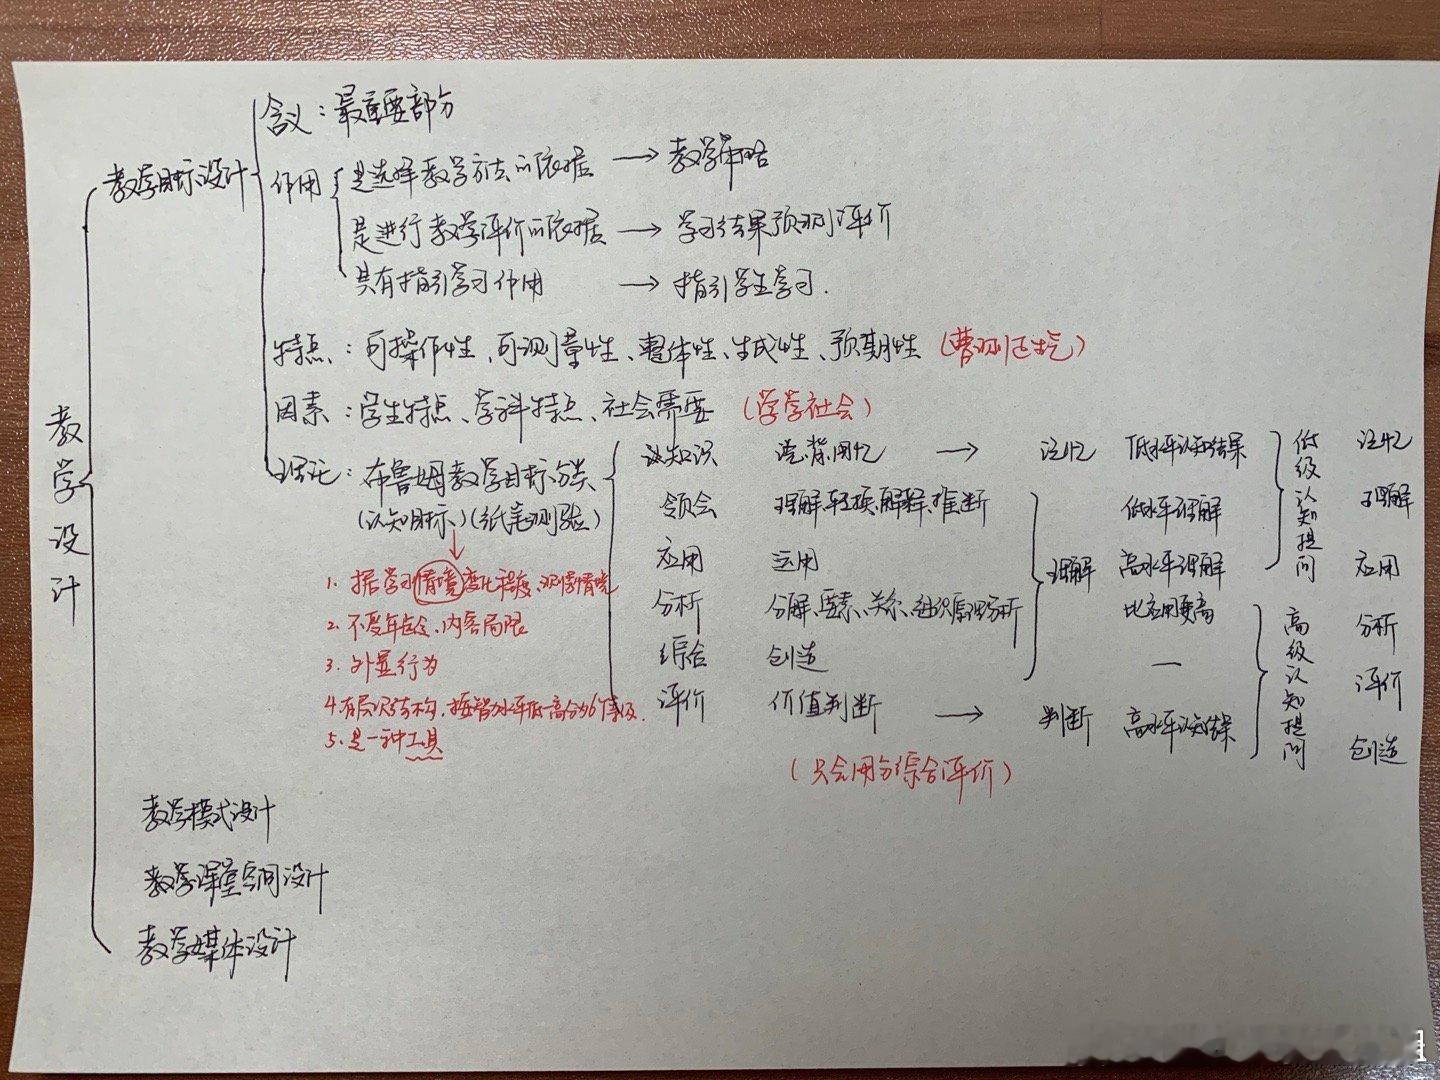 教学设计
教学目标设计
含义：最重要部分
作用
是选择教学方法的依据 → 教学策略
是进行教学评价的依据 → 学习结果预测评价
具有指引学习作用 → 指引学生学习.
特点：可操作性、可测量性、整体性、生成性、预期性
因素：学生特点、学科特点、社会需要 (学学社会)
理论：布鲁姆教学目标分类
(认知目标、)(纸笔测验)
1. 据学习情境变化程度、
2. 不受年龄、内容局限
3. 外显行为
4. 有层次结构，按智力水平低-高分为6等级.
5. 是一种工具
知识 背、回忆 → 记忆 低水平认知结果
领会 理解、转换、解释、推断 低水平理解
应用 运用 理解 高水平理解
分析 分解、要素、关系、组织原理分析 比应用更高
综合 创造 —
评价 价值判断 → 判断 高水平认知结果
(只会用分综合评价)
低级认知提问
高级认知提问
记忆
理解
应用
分析
评价
创造
教学模式设计
教学课堂空间设计
教学媒体设计
1